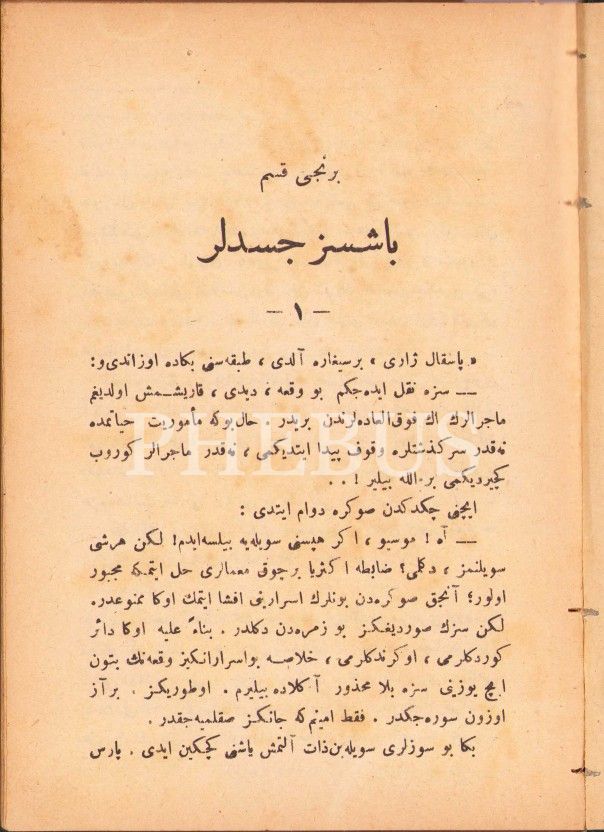 برنجی قسم
باشسز جسدلر
— ١ —
« پاسقال ژاری ، برسیغاره آلدی ، طبقه‌سنی بکاده اوزاتدی و :
— سزه نقل ایده‌جکم بو وقعه ، دیدی ، قاریشـمش اولدیغم
ماجرالرك اك فوق‌العاده‌لرندن بریدر . حال‌بوکه مأموریت حیاتمده
نه‌قدر سرکذشتلره وقوف پیدا ایتدیکمی ، نه‌قدر ماجرالر کوروب
کچیردیکمی بر الله بیلیر ! . .
ایچنی چکدکدن صوکره دوام ایتدی :
— آه ! موسیو ، اکر هپسنی سویله‌یه بیلسه‌ایدم ! لکن هرشی
سویلنمز ، دکلمی ؟ ضابطه اکثریا برچوق معمالری حل ایتمکه مجبور
اولور ؛ آنجق صوکره‌دن بونلرك اسرارینی افشا ایتمك اوکا ممنوعدر .
لکن سزك صوردیغکز بو زمره‌دن دکلدر . بناءً علیه اوکا دائر
کوردکلرمی ، اوکرندکلرمی ، خلاصه بواسرارانکیز وقعه‌نك بتون
ایچ یوزینی سزه بلا محذور آکلاده بیلیرم . اوطوریکز . برآز
اوزون سوره‌جکدر . فقط امینم‌که جانکز صقلمیه‌جقدر .
بکا بو سوزلری سویله‌ین‌ذات آلتمش یاشنی کچکین ایدی . پارس
PHEBUS